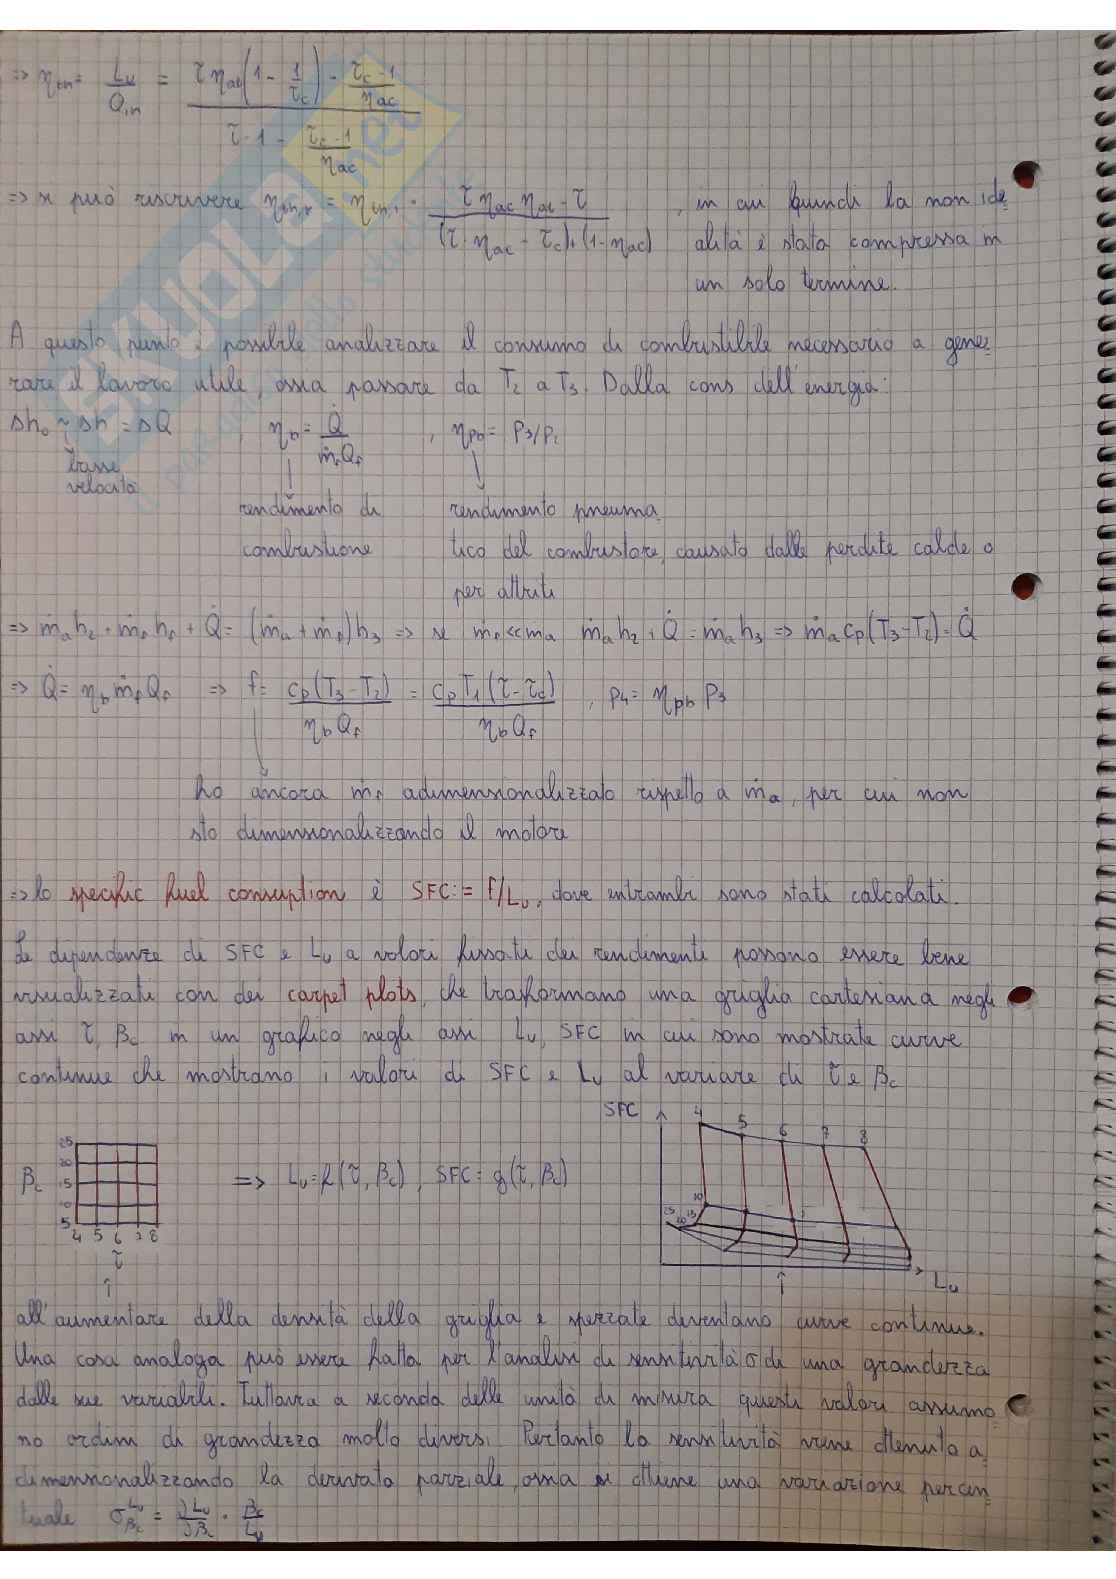 => η_th = L_u / Q_in = (τ η_at (1 - 1/τ_c) - (τ_c - 1)/η_ac) / (τ - 1 - (τ_c - 1)/η_ac)
=> si può riscrivere η_th,r = η_th,i · (τ η_ac η_at - τ_c) / ((τ · η_ac - τ_c) + (1 - η_ac)) , in cui quindi la non ide
alità è stata compressa in
un solo termine.
A questo punto è possibile analizzare il consumo di combustibile necessario a gene
rare il lavoro utile, ossia passare da T2 a T3. Dalla cons dell'energia:
Δh₀ ≈ Δh = ΔQ , η_b = Q̇ / ṁ_f Q_f , η_pb = P3/P2
basse
velocità
rendimento di
combustione
rendimento pneuma
tico del combustore, causato dalle perdite calde o
per attriti
=> ṁ_a h2 + ṁ_f h_f + Q̇ = (ṁ_a + ṁ_f) h3 => se ṁ_f << ṁ_a ṁ_a h2 + Q̇ = ṁ_a h3 => ṁ_a cp (T3 - T2) = Q̇
=> Q̇ = η_b ṁ_f Q_f => f = cp (T3 - T2) / η_b Q_f = cp T1 (τ - τ_c) / η_b Q_f , P4 = η_pb P3
ho ancora ṁ_f adimensionalizzato rispetto a ṁ_a, per cui non
sto dimensionalizzando il motore
=> lo specific fuel consuption è SFC := f/L_u, dove entrambi sono stati calcolati.
Le dipendenze di SFC e L_u a valori fissati dei rendimenti possono essere bene
visualizzati con dei carpet plots, che trasformano una griglia cartesiana negli
assi τ, β_c in un grafico negli assi L_u, SFC in cui sono mostrate curve
continue che mostrano i valori di SFC e L_u al variare di τ e β_c
β_c
25
20
15
10
5
4 5 6 7 8
τ
=> L_u = f(τ, β_c), SFC = g(τ, β_c)
SFC
4 5 6 7 8
25 20 15 10
L_u
all'aumentare della densità della griglia e spezzate diventano curve continue.
Una cosa analoga può essere fatta per l'analisi di sensitività σ di una grandezza
dalle sue variabili. Tuttavia a seconda delle unità di misura questi valori assumo
no ordini di grandezza molto diversi. Pertanto la sensitività viene ottenuta a
dimensionalizzando la derivata parziale, ossia si ottiene una variazione percen
tuale σ_βc^Lu = ∂L_u/∂β_c · β_c/L_u
SKUOLA.net